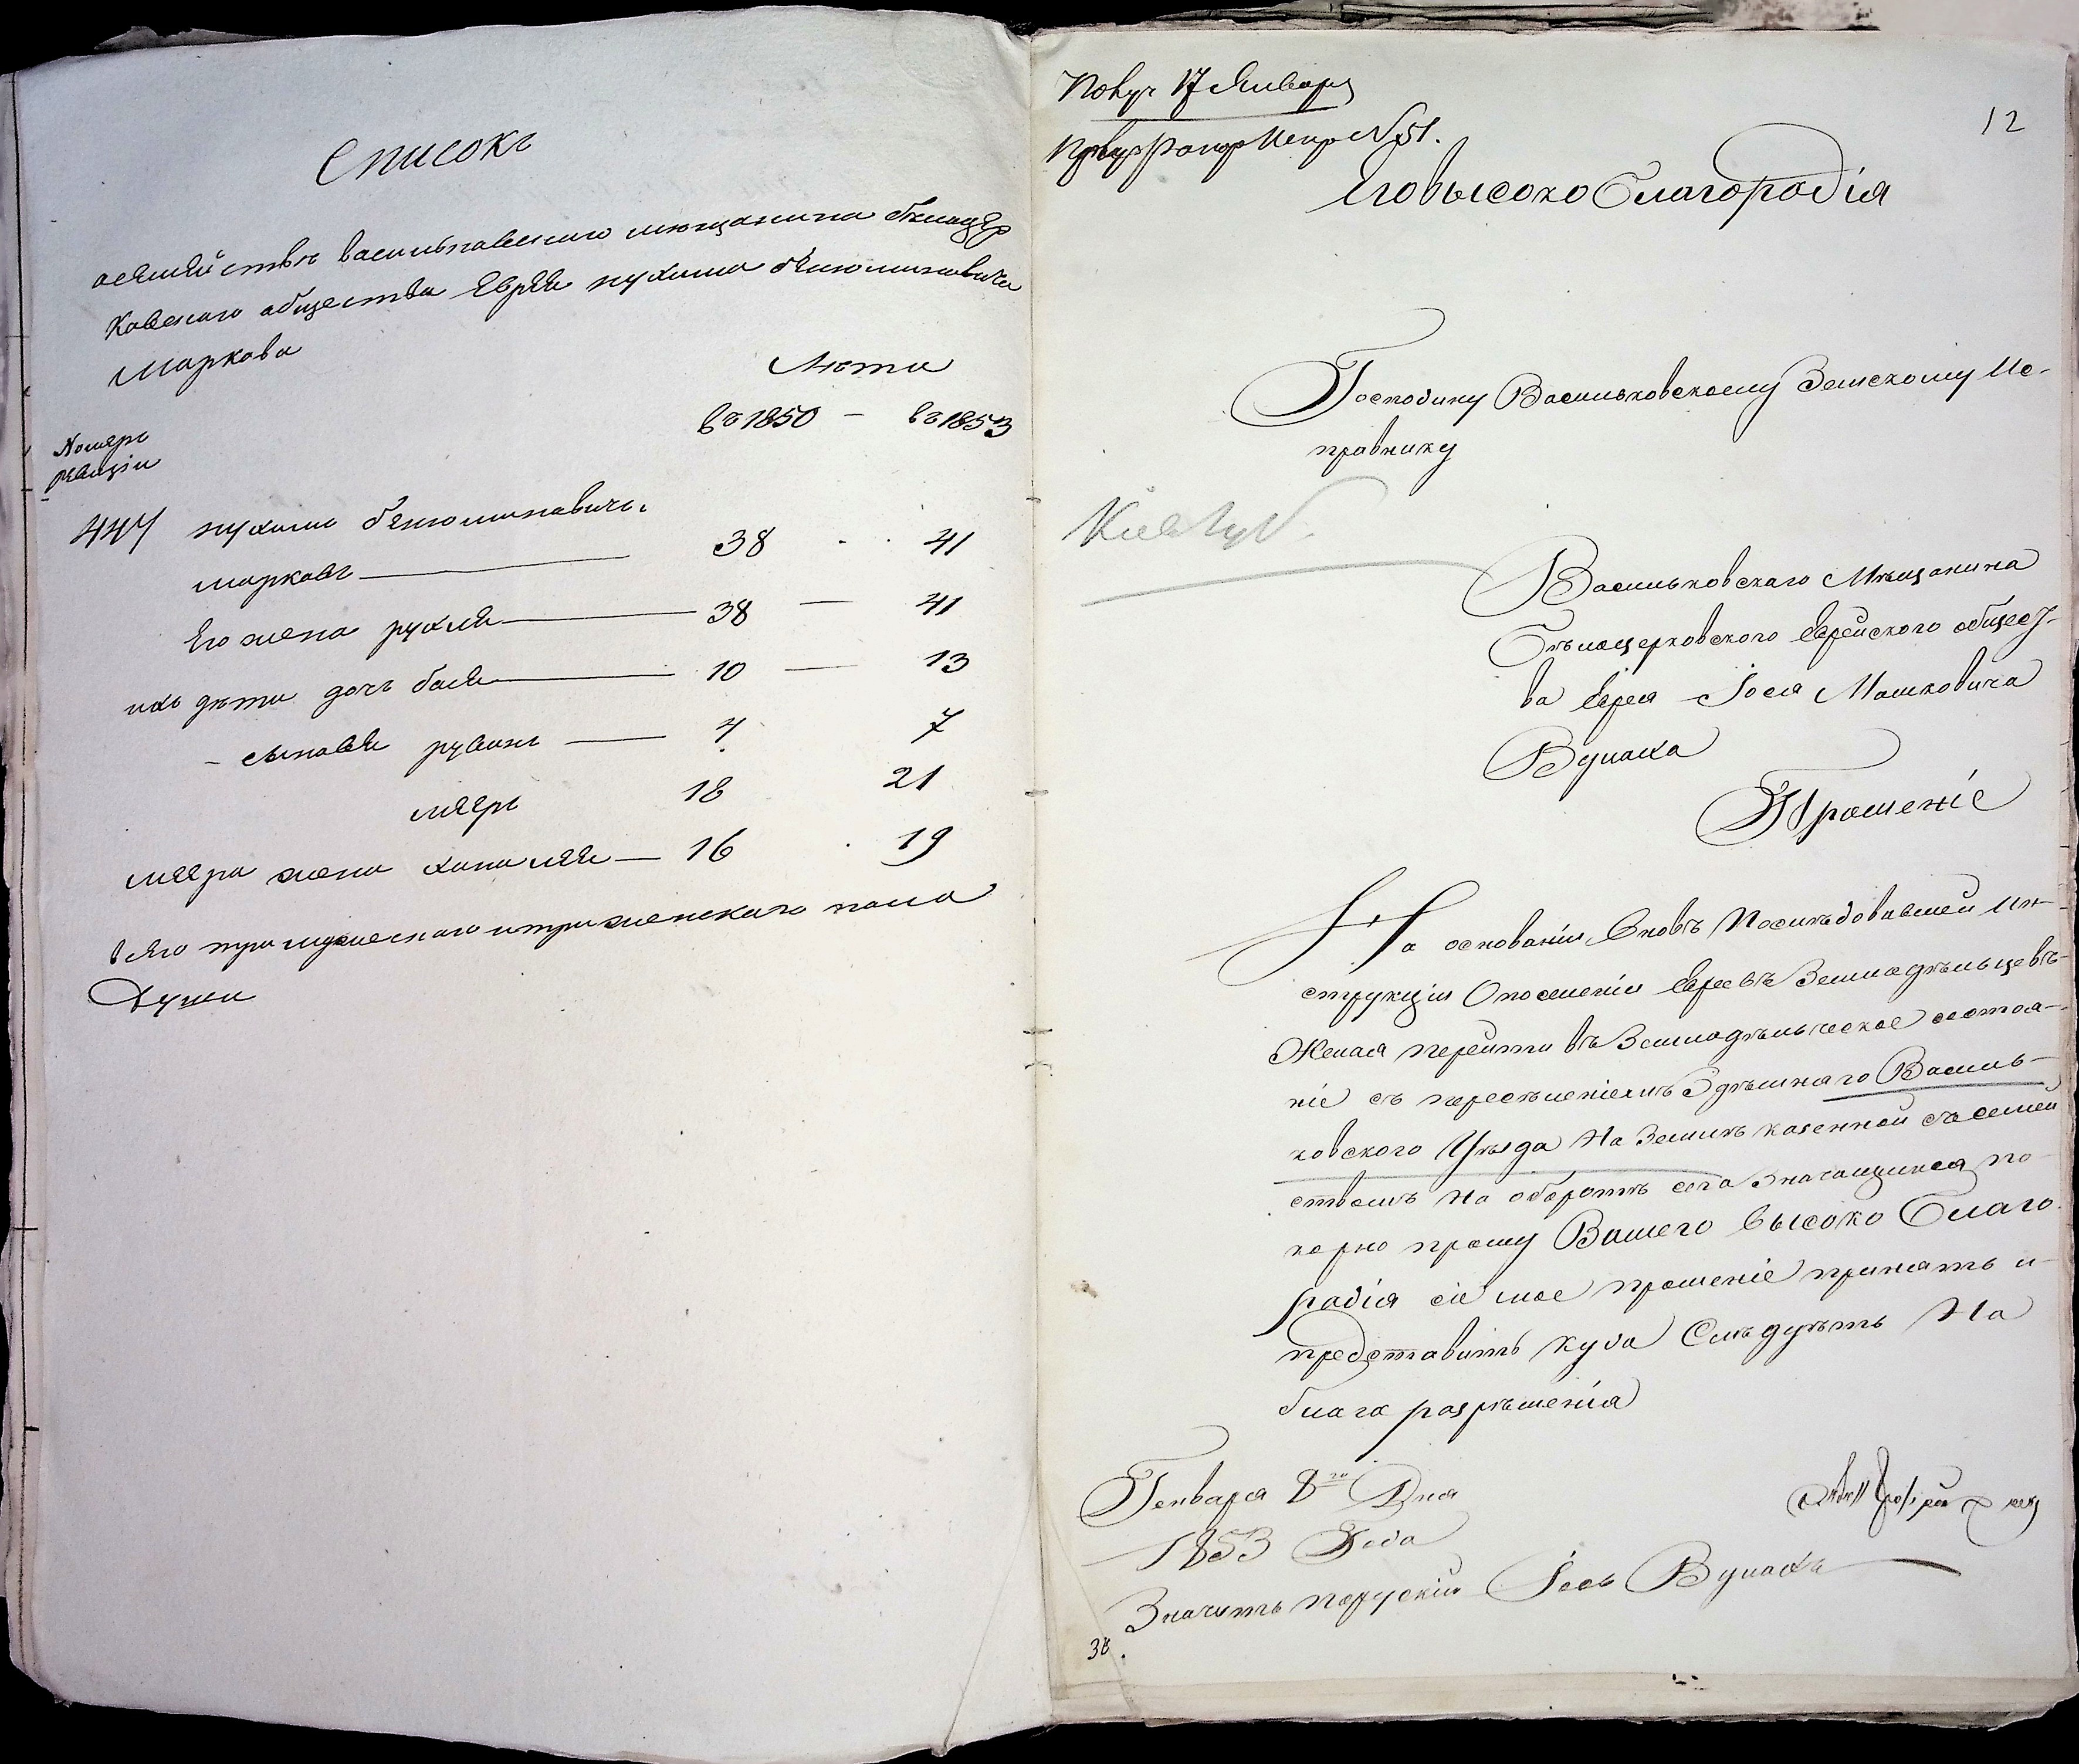 Списокъ
осемействе васильковского мещанина белацер
ковского общества еврея нухима бенюминовича
маркова
Лета
въ 1850 — въ 1853
Номеръ
ревизіи
447 нухимъ бенюминовичъ
марковъ — 38 41
Его жена рухля — 38 — 41
ихъ дети дочъ бася — 10 — 13
- сыновья рувинъ — 4 7
мееръ 18 21
меера жена ханалея — 16 19
всего три мужескаго и три женскаго пола
Души
Получ 17 Января
№ 51.
12
Его высоко Благородія
Господину Васильковскому Земскому Ис-
правнику
Васильковскаго Мѣщанина
Бѣлоцерковского Еврейского общест-
ва Еврея Іося Мошковича
Вулаха
Прошеніе
На основаніи вновъ Послѣдовавшей Ин-
струкціи О поселеніи Евреевъ Земледѣльцевъ
Желая перейти въ Земледѣльческое состоя-
ніе съ переселеніемъ Здѣшнаго Василь-
ковского Уѣзда На Землѣ казенной съ семей
ствомъ На оборотѣ сего Значащимся по
корно прошу Вашего Высоко Благо
родія сіе мое прошеніе принять и
представить куда Слѣдуетъ На
благо разрѣшенія
Генваря 8го Дня
1853 Года
Значитъ поруским Іось Вулахъ
38.